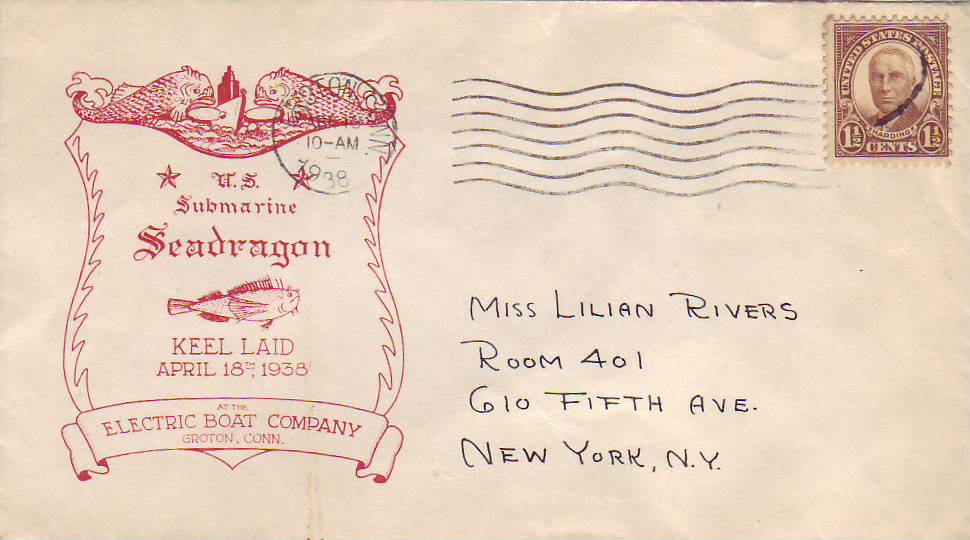 U.S.
Submarine
Seadragon
KEEL LAID
APRIL 18TH, 1938
AT THE
ELECTRIC BOAT COMPANY
GROTON, CONN.
CONN.
10-AM
1938
UNITED STATES POSTAGE
HARDING
1½ CENTS 1½
MISS LILIAN RIVERS
ROOM 401
610 FIFTH AVE.
NEW YORK, N.Y.